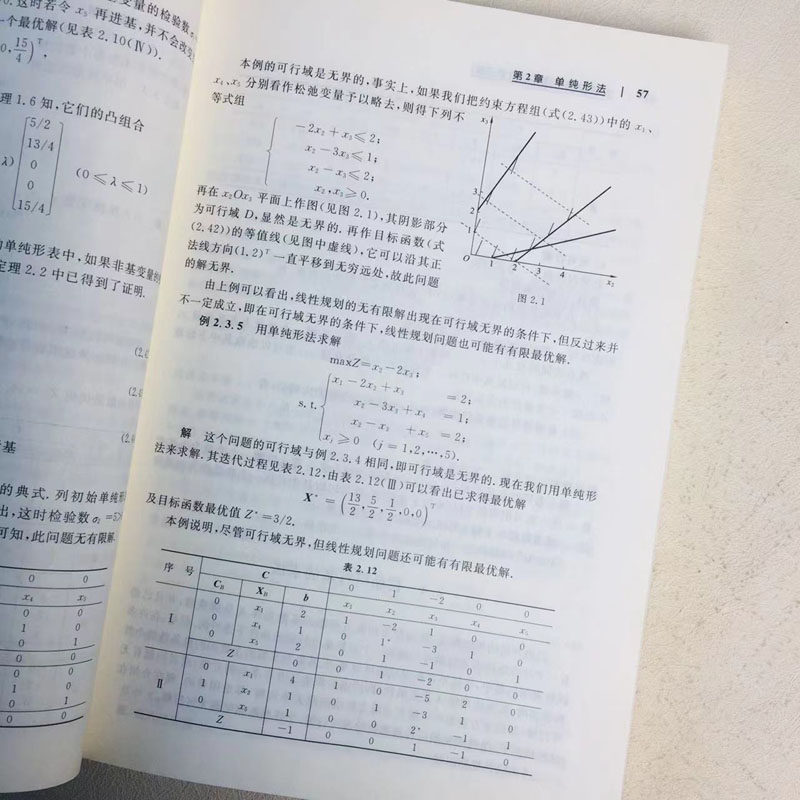 0.这时若令 x₅ 再进基,并不会改变
一个最优解(见表 2.10(Ⅳ)).
理 1.6 知,它们的凸组合
5/2
13/4
0
0
15/4
(0≤λ≤1)
的单纯形表中,如果非基变量的
定理 2.2 中已得到了证明.
的典式. 列初始单纯形
出,这时检验数σ₁=5>
可知,此问题无有限解.
0 0
x₄ x₅
0 0
1 0
0 1
0 0
0 0
1 0
0 1
0 0
第 2 章 单纯形法 | 57
本例的可行域是无界的,事实上,如果我们把约束方程组(式(2.43))中的 x₁、
x₄、x₅ 分别看作松弛变量予以略去,则得下列不
等式组
-2x₂+x₃≤2;
x₂-3x₃≤1;
x₂-x₃≤2;
x₂,x₃≥0.
再在 x₂Ox₃ 平面上作图(见图 2.1),其阴影部分
为可行域 D,显然是无界的. 再作目标函数(式
(2.42))的等值线(见图中虚线),它可以沿其正
法线方向(1,2)ᵀ 一直平移到无穷远处,故此问题
的解无界.
x₃
3
2
1
O 1 2 3 4 x₂
图 2.1
由上例可以看出,线性规划的无有限解出现在可行域无界的条件下,但反过来并
不一定成立,即在可行域无界的条件下,线性规划问题也可能有有限最优解.
例 2.3.5 用单纯形法求解
maxZ=x₂-2x₃;
x₁-2x₂+x₃ =2;
s.t. x₂-3x₃+x₄ =1;
x₂-x₃ +x₅ =2;
xⱼ≥0 (j=1,2,…,5).
解 这个问题的可行域与例 2.3.4 相同,即可行域是无界的. 现在我们用单纯形
法来求解. 其迭代过程见表 2.12,由表 2.12(Ⅲ)可以看出已求得最优解
X* = (13/2, 5/2, 1/2, 0, 0)ᵀ
及目标函数最优值 Z*=3/2.
本例说明,尽管可行域无界,但线性规划问题还可能有有限最优解.
表 2.12
序 号 C 0 1 -2 0 0
C_B X_B b x₁ x₂ x₃ x₄ x₅
Ⅰ 0 x₁ 2 1 -2 1 0 0
0 x₄ 1 0 1* -3 1 0
0 x₅ 2 0 1 -1 0 1
Z 0 0 1 -2 0 0
Ⅱ 0 x₁ 4 1 0 -5 2 0
1 x₂ 1 0 1 -3 1 0
0 x₅ 1 0 0 2* -1 1
Z -1 0 0 1 -1 0